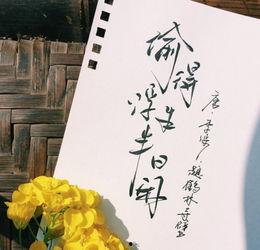 偷得
浮生
半日闲
唐·李涉《题鹤林寺壁》